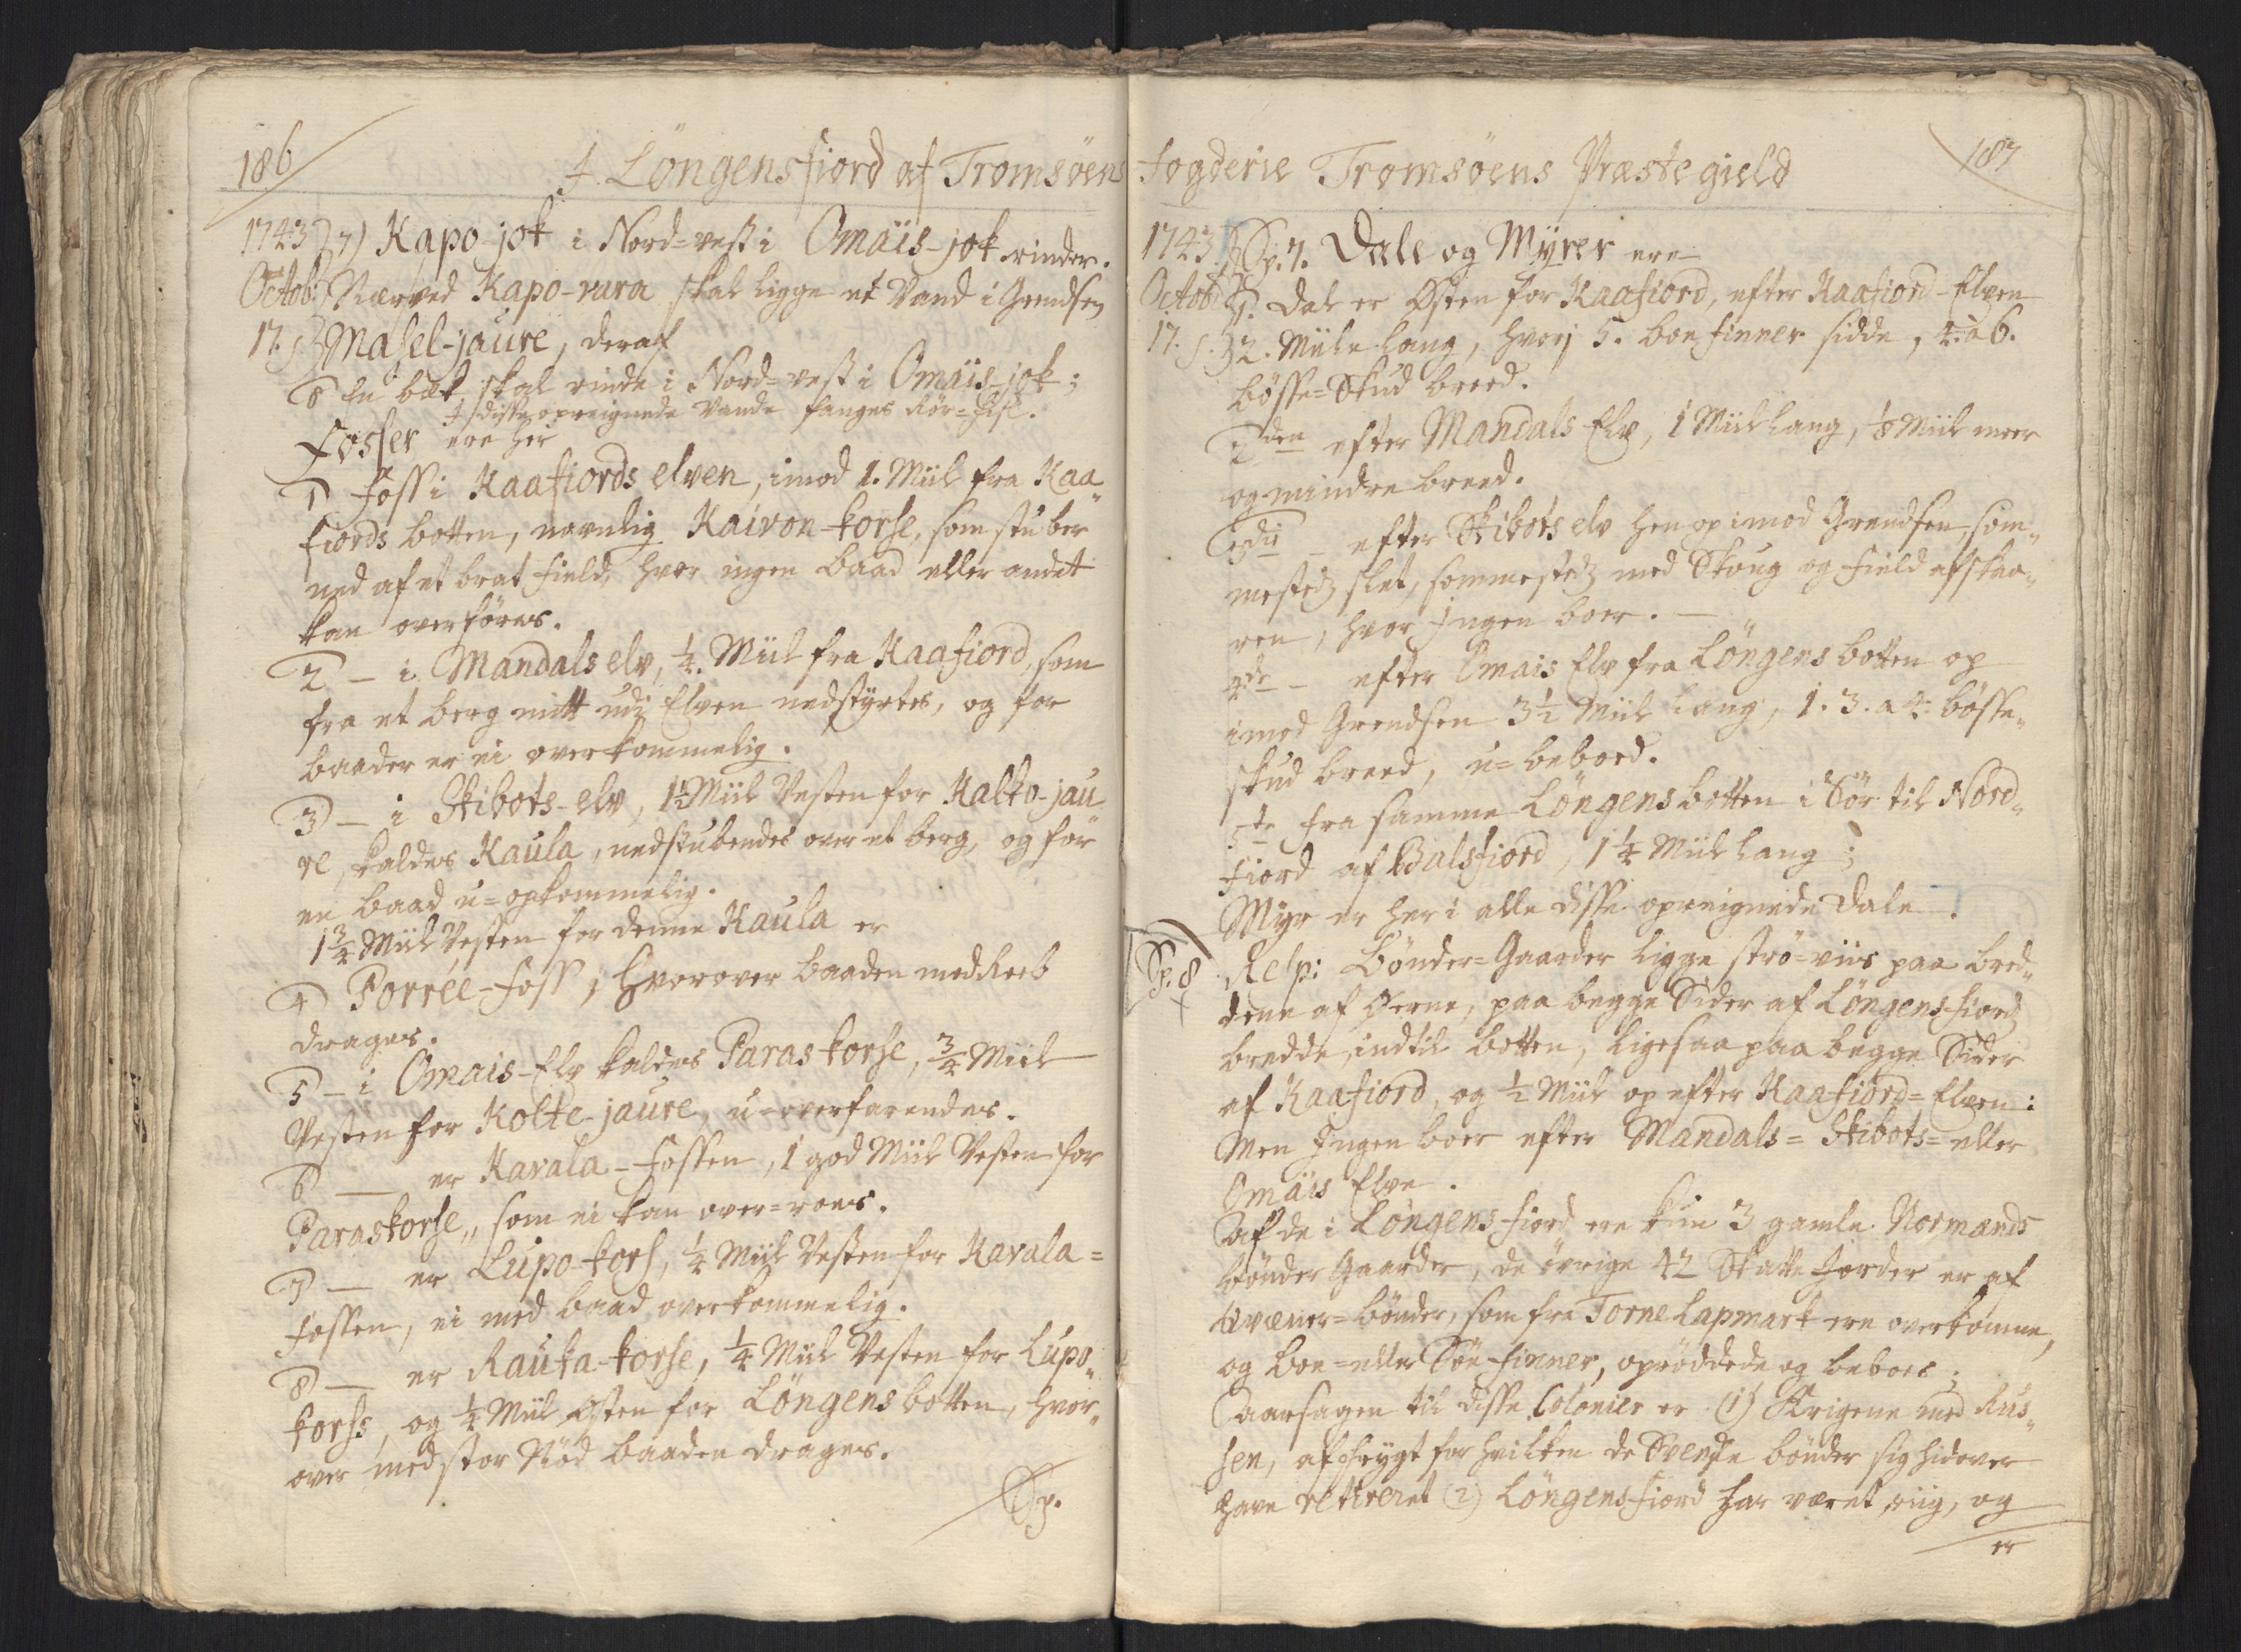 186
J. Löngensfiord af Tromsöens
1743 7) Kapo-jok i Nord-vest i Omaïs-jok rinder.
Octob: Nærved Kapo-vara skal ligge et Vand i Grendsen
17. Masel-jaure, deraf
8 En bek skal rinde i Nord-vest i Omaïs-jok;
I disse opreignede Vande fanges Rör-fisk.
Fosser ere her
1 Foss i Kaafiords elven, imod 1. Miil fra Kaa-
fiords botten, navnlig Kaivon-korse, som stuber
ned af et brat field, hvor ingen baad eller andet
kan overføres.
2 — i Mandals elv, ¼. Miil fra Kaafiord, som
fra et berg mitt udj Elven nedstyrtes, og for
baader er ei overkommelig.
3 — i Skibots-elv, 1½ Miil Vesten for Kalko-jau
re, kaldes Kaula, nedstubendes over et berg, og for
en baad u-opkommelig.
1¾ Miil Vesten for denne Kaula er
4 Porrée-foss, hvorover baaden med Reeb
drages.
5 — i Omais-Elv kaldes Paraskorse, ¾ Miil
Vesten for Kolte-jaure, u-overfarendes.
6 — er Kavala-Fossen, 1 god Miil Vesten for
Paraskorse, som ei kan over-roes.
7 — er Lupo-kors, ¼ Miil Vesten for Kavala-
fossen, ei med baad overkommelig.
8 — er Rauka-korse, ¼ Miil Vesten for Lupo-
kors, og ¼ Miil Østen for Löngens botten, hvor-
over med stor Nöd baaden drages.
Sp.
Fogderie Tromsöens Præste gield
187
1743. Sp. 7. Dale og Myrer ere
Octob: 1. Dal er Østen for Kaafiord, efter Kaafiord-Elven
17. 2. Miile lang, hvorj 5. boe finner sidde, 4. à 6.
bösse-Skud breed.
2den efter Mandals Elv, 1 Miil lang, ⅛ Miil meer
og mindre breed.
3die — efter Skibots elv hen op imod Grendsen, som-
mesteds slet, sommesteds med Skoug og field afskaa-
ren, hvor Ingen boer. —
4de — efter Omais Elv fra Löngens botten op
imod Grendsen 3½ Miil lang, 1. 3. a 4. bösse-
skud breed, u-beboed.
5te fra samme Löngens botten i Sör til Nord-
fiord af Balsfiord, 1¼ Miil lang;
Myr er her i alle disse opreignede Dale.
Sp. 8 Resp: Bönder-Gaarder ligge strö-viis paa bred-
dene af Øerne, paa begge Sider af Löngens-fiord
bredde, indtil botten, ligesaa paa begge Sider
af Kaafiord, og ½ Miil op efter Kaafiord-Elven:
Men Ingen boer efter Mandals- Skibots- eller
Omäis Elve.
Af de i Löngens-fiord ere kun 3 gamle Normænds
bönder Gaarder, de övrige 42 Skatte Jorder er af
Qvæner-bönder, som fra Torne Lapmark ere overkomne,
og boe- eller Söe-finner, oprøddede og beboes;
Aarsagen til disse Colonier er (1) Krigene med Rus-
sen, af frygt for hvilken de Svenske bönder sig hidover
have retireret (2) Löngens-fiord har været riig, og
er